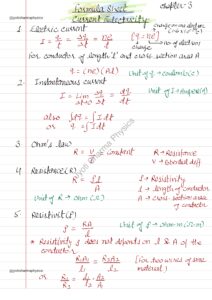 Formula Sheet
chapter-3
Current Electricity
1. Electric current
I = q/t = Δq/Δt = ne/t
(q = ne)
charge
no of electrons
For conductors of length 'l' and cross section area A
q = (ne)(Al)
Unit of q → coulomb(c)
2. Instantaneous current
I = Lim Δt→0 Δq/Δt = dq/dt
Unit of I → Ampere(A)
also ∫dq = ∫I dt
or q = ∫I dt
3. Ohm's law
R = V/I = constant
R → Resistance
V → potential diff
4. Resistance(R)
R = ρl/A
ρ → Resistivity
l → length of conductor
A → cross-section area of conductor
Unit of R → ohm (Ω)
5. Resistivity(ρ)
ρ = RA/l
Unit of ρ → ohm-m (Ω-m)
* Resistivity ρ does not depends on l & A of the
conductors
R₁A₁/l₁ = R₂A₂/l₂
[For two wires of same
material]
or R₁/R₂ = l₁/l₂ · A₂/A₁
@jyotisharmaphysics
@jyotisharmaphysics